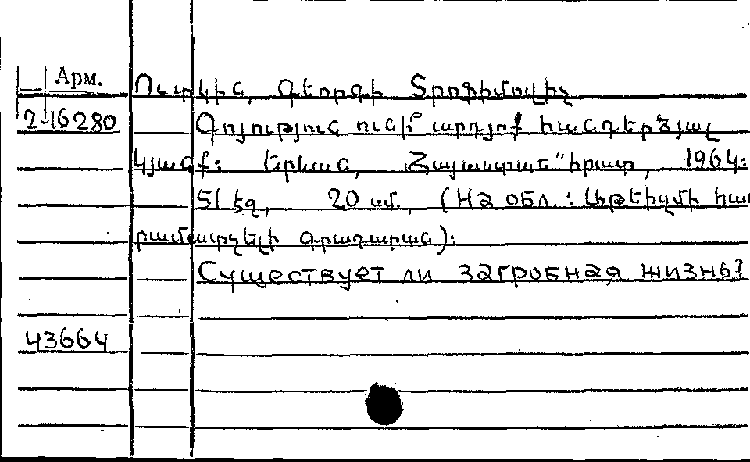 Арм.
Ուտկին, Գեորգի Տրոֆիմովիչ
2-16280
Գոյություն ունի՞ արդյոք հանդերձյալ
կյանք: Երևան, "Հայպետհրատ", 1964:
51 էջ, 20 սմ, (На обл.: Աթեիզմի հան
րամատչելի գրադարան):
Существует ли загробная жизнь?
43664